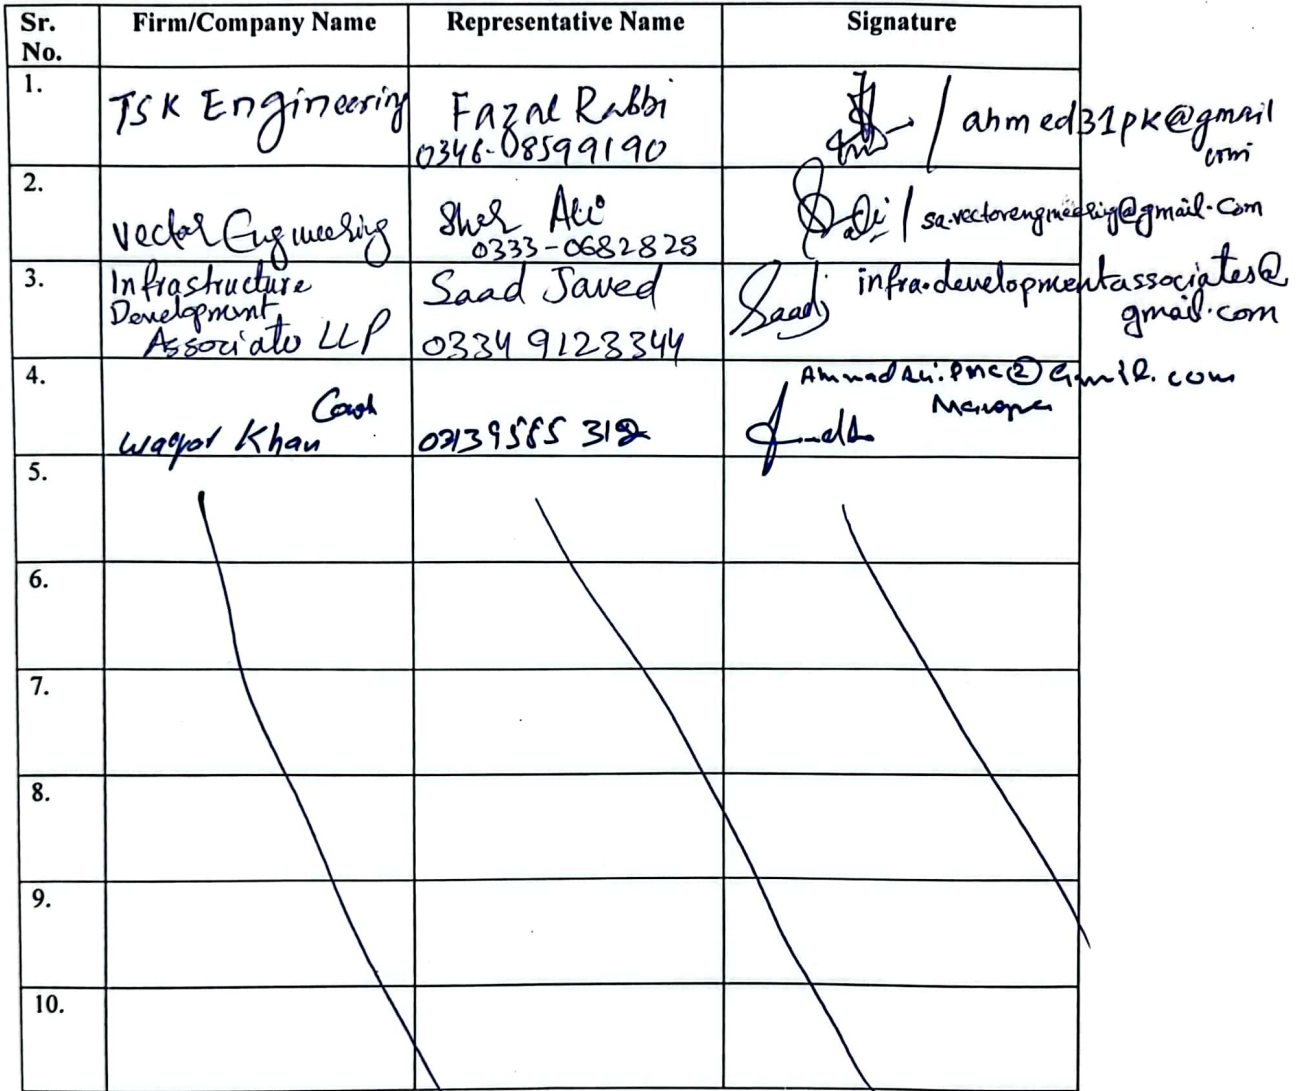 Sr. No. Firm/Company Name Representative Name Signature
1. TSK Engineering Fazal Rabbi
0346-08599190 / ahmed31pk@gmail
com
2. Vector Engineering Sher Ali
0333-0682828 / sa.vectorengineering@gmail.com
3. Infrastructure
Development
Associate LLP Saad Javed
0334 9123344 Saadj infra.developmentassociates@
gmail.com
4. Waqar Khan
5.
6.
7.
8.
9.
10.